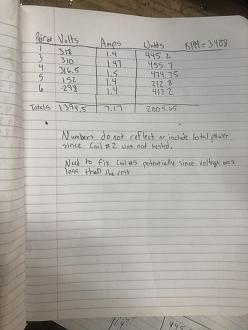 Volts Amps Watts RPM = 3408
1 318 1.4 445.2
3 310 1.47 455.7
4 316.5 1.5 474.75
5 152 1.4 212.8
6 298 1.4 417.2
Totals 1394.5 7.17 2005.65
Numbers do not reflect or include total power
since Coil #2 was not tested.
Need to fix Coil #5 potentially since voltage was
less than the rest